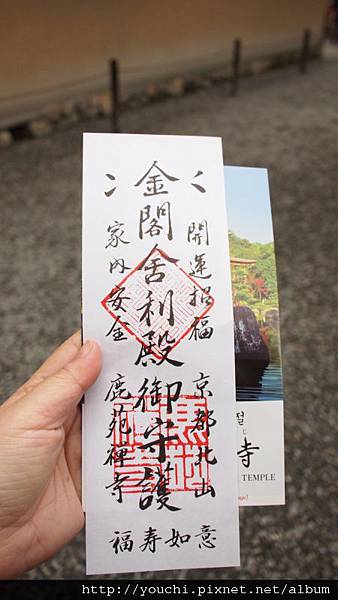 開運招福 京都北山
金閣舎利殿御守護
家内安全 鹿苑禅寺
福寿如意
절
寺
TEMPLE
http://youchi.pixnet.net/album